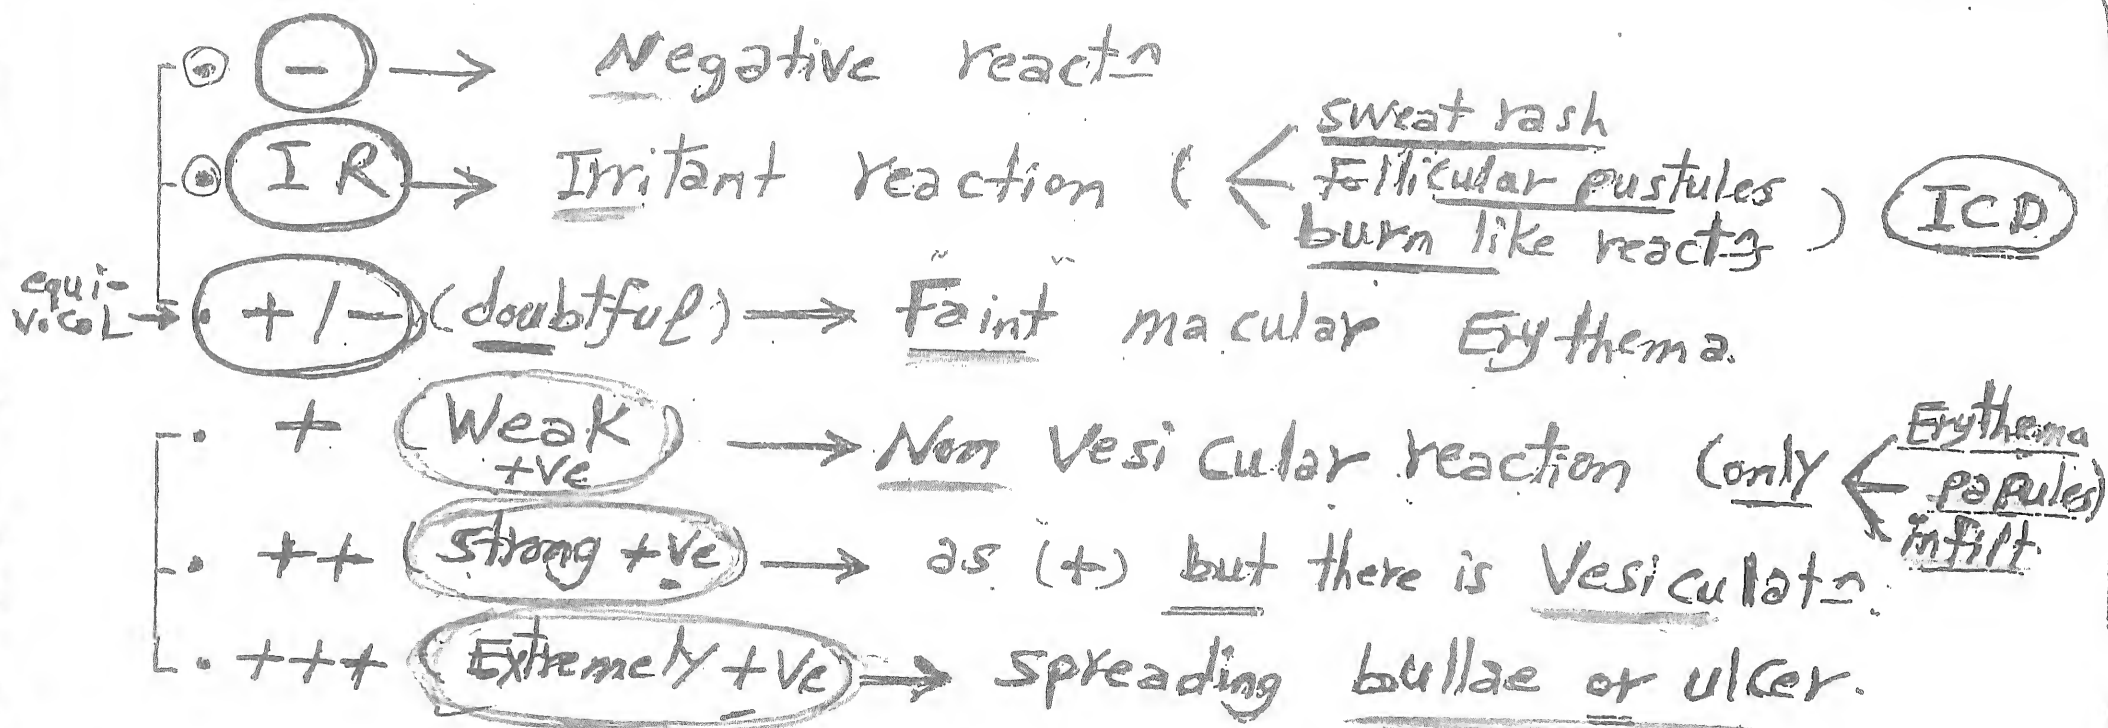 - → Negative reactn
IR → Irritant reaction ( sweat rash
Follicular pustules
burn like reactn ) ICD
equi-
vocal → +/- (doubtful) → Faint macular Erythema.
+ Weak +ve → Non Vesicular reaction (only Erythema
papules)
infilt.
++ strong +ve → as (+) but there is Vesiculatn.
+++ Extremely +ve → spreading bullae or ulcer.